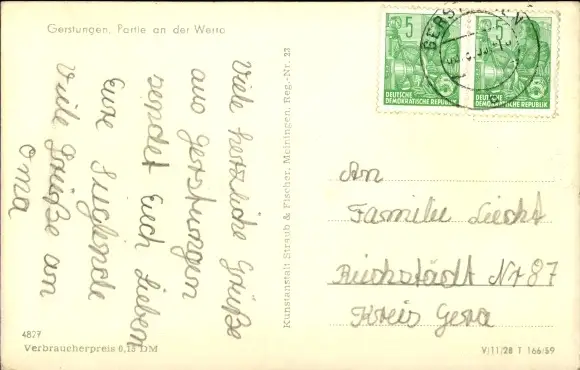 Gerstungen, Partie an der Werra
Viele herzliche Grüße
aus Gerstungen
sendet Euch Lieben
Eure Sieglinde
Viele Grüße an
Oma
4827
Verbraucherpreis 0,15 DM
Kunstanstalt Straub & Fischer, Meiningen, Reg.-Nr. 23
5
DEUTSCHE
DEMOKRATISCHE REPUBLIK
5
DEUTSCHE
DEMOKRATISCHE REPUBLIK
An
Familie Liecht
Reichstädt Nr 87
Kreis Gera
V/11/28 T 166/59